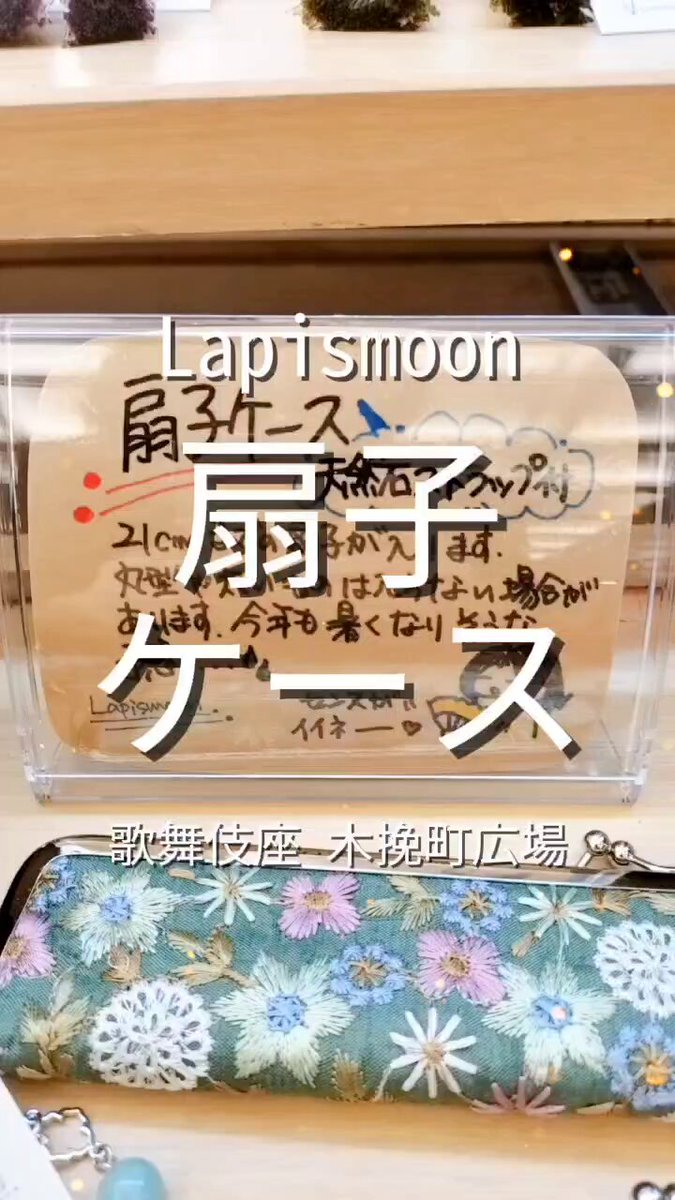 Lapismoon
扇子
ケース
歌舞伎座 木挽町広場
扇子ケース
天然石ストラップ付
21cm 子が入ります.
丸型 は入らない場合が
あります. 今年も暑くなりそうな
Lapismoon.
センスが
イイネー♡